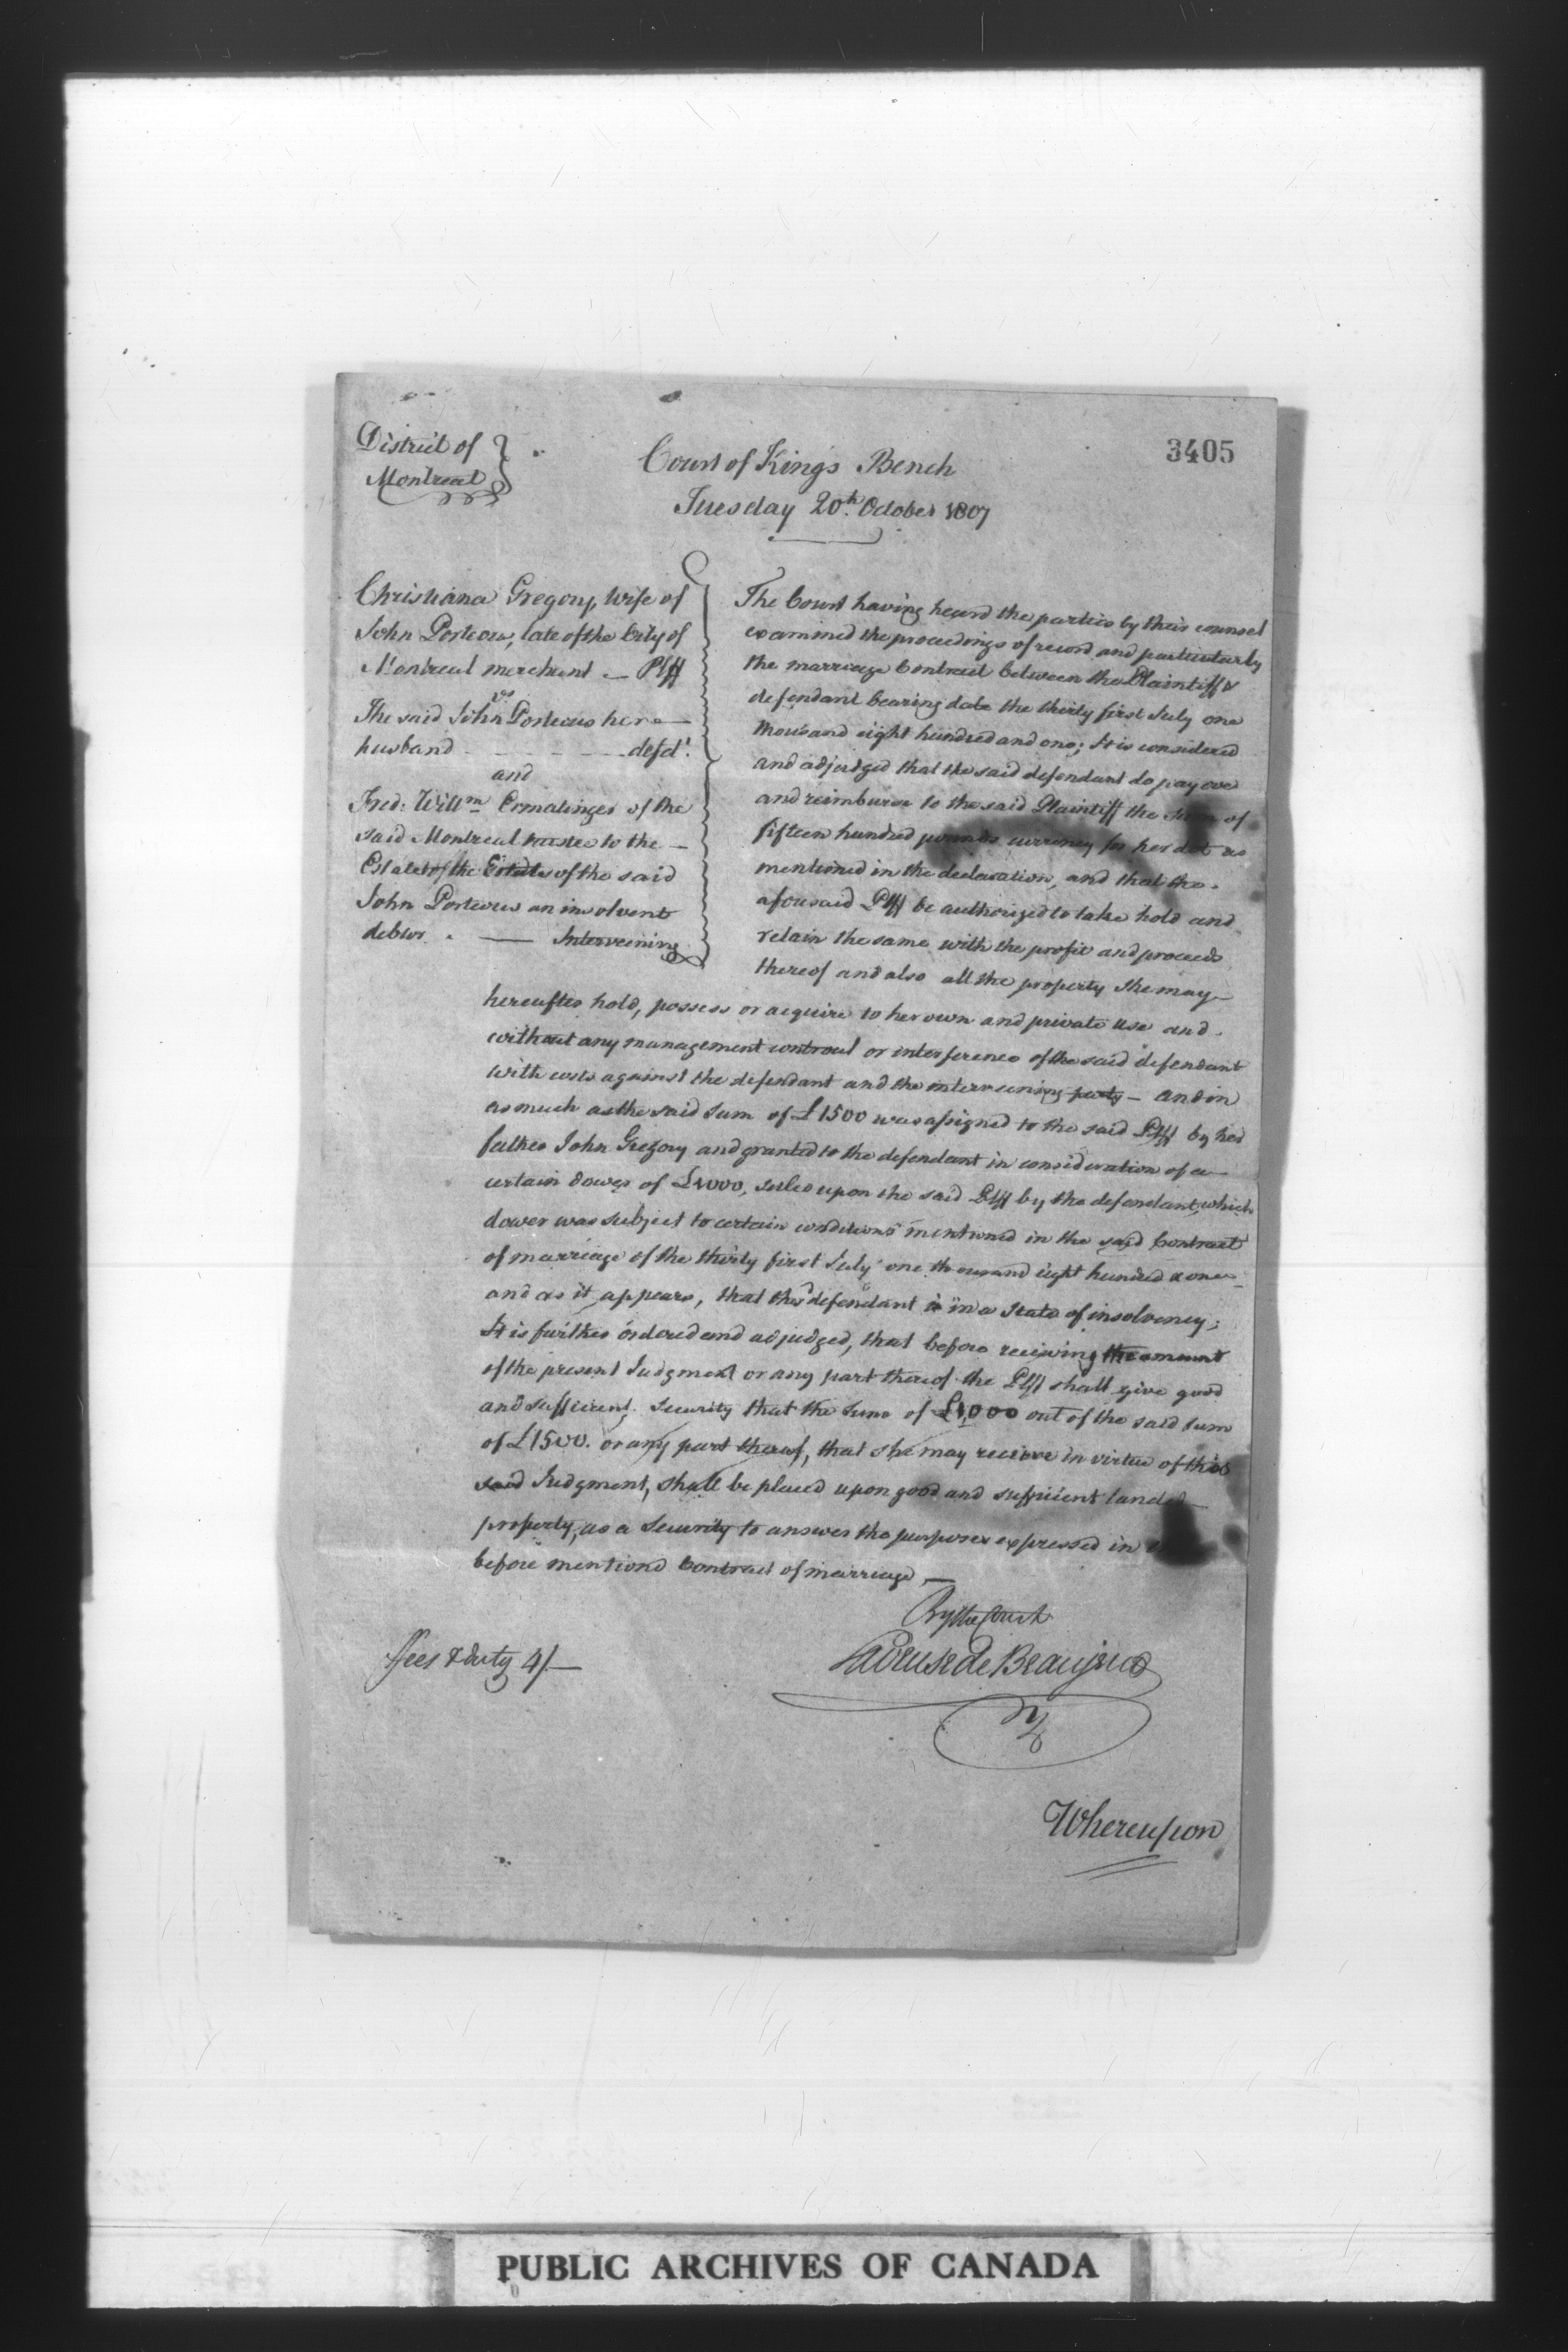 3405
District of
Montreal
Court of Kings Bench
Tuesday 20th October 1807
Christiana Gregory, wife of
John Porteous, late of the City of
Montreal merchant — Plff
vs
The said John Porteous her
husband - - - - - defdt.
and
Fred: Willm Ermatinger of the
said Montreal trustee to the —
Estate of the Estate of the said
John Porteous an insolvent
debtor. — Interveening
The Court having heard the parties by their counsel
examined the proceedings of record and particularly
the marriage Contract between the Plaintiff &
defendant bearing date the thirty first July one
thousand eight hundred and one; It is considered
and adjudged that the said defendant do pay over
and reimburse to the said Plaintiff the Sum of
fifteen hundred pounds currency for her dot as
mentioned in the declaration, and that the
aforesaid Plff be authorized to take hold and
retain the same with the profit and proceeds
thereof and also all the property she may
hereafter hold, possess or acquire to her own and private use and
without any management controul or interference of the said defendant
with costs against the defendant and the interveening party — and in
as much as the said Sum of £1500 was assigned to the said Plff by her
father John Gregory and granted to the defendant in consideration of a
certain dower of £1000, settled upon the said Plff by the defendant, which
dower was subject to certain conditions mentioned in the said Contract
of marriage of the thirty first July one thousand eight hundred & one
and as it appears, that the defendant is in a state of insolvency;
It is further ordered and adjudged, that before receiving the amount
of the present Judgment or any part thereof the Plff shall give good
and sufficient Security that the Sum of £1,000 out of the said sum
of £1500. or any part thereof, that she may receive in virtue of this
said Judgment, shall be placed upon good and sufficient landed
property, as a Security to answer the purposes expressed in
before mentiond Contract of marriage —
By the Court
de Beaujeu
ffees & duty 4/—
Whereupon
PUBLIC ARCHIVES OF CANADA